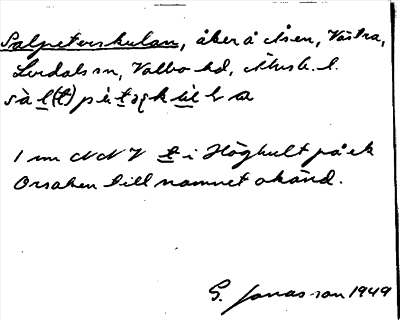 Salpeterskulan, åker å Åsen, Västra,
Lerdals sn, Valbo hd, Älvsb. l.
sàl(t)pètǝrskùl a
1 mm NNV t i Höghult på ek
Orsaken till namnet okänd.
G. Jonasson 1949